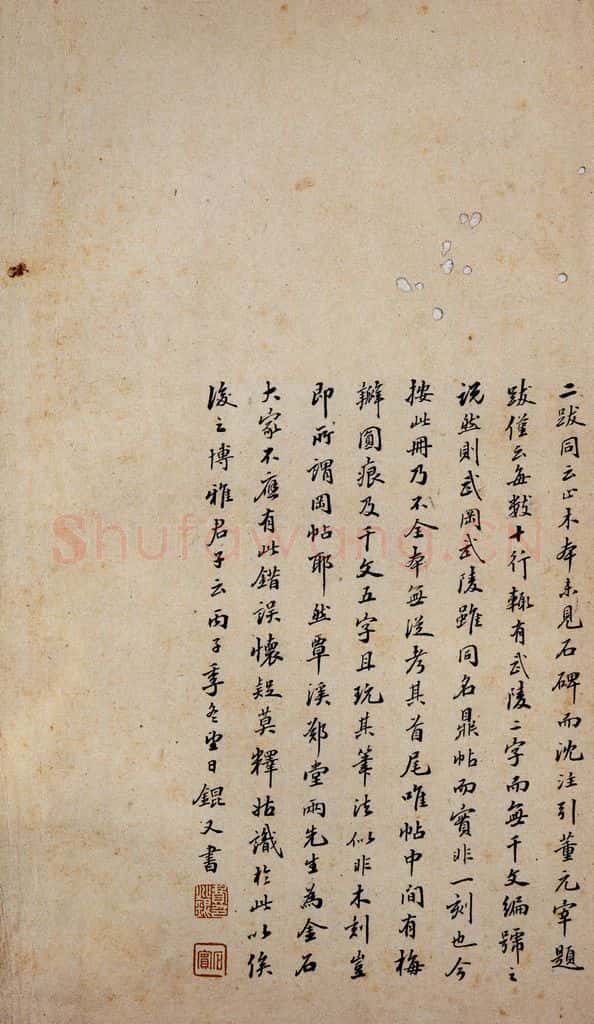 二跋同云止木本未見石碑而沈注引董元宰題
跋僅云每數十行輒有武陵二字而無千文編號之
説然則武岡武陵雖同名鼎帖而實非一刻也今
按此冊乃不全本無從考其首尾唯帖中間有梅
瓣圓痕及千文五字且玩其筆法似非木刻豈
即所謂岡帖耶然覃溪鄭堂兩先生為金石
大家不應有此錯誤懷疑莫釋姑識於此以俟
後之博雅君子云丙子季冬望日錕又書
Shufawang.cn